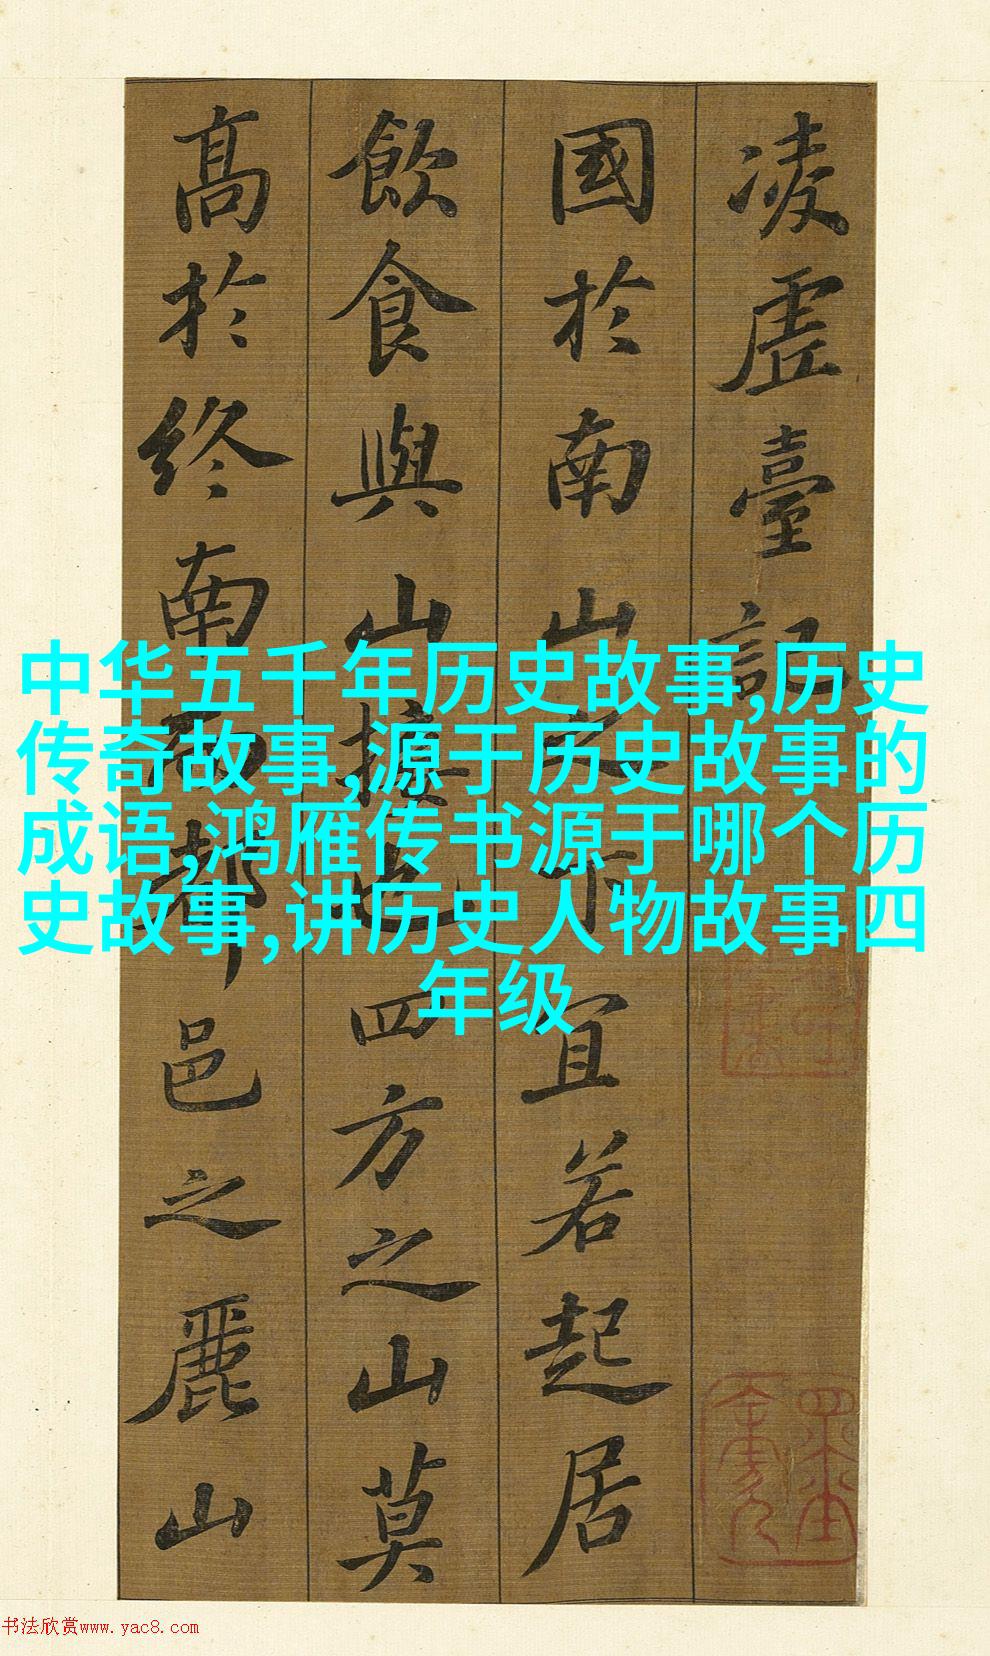 凌虛臺記
國於南山之下宜若起居
飲食與山接也四方之山莫
高於終南而都邑之麗山
中华五千年历史故事,历史
传奇故事,源于历史故事的
成语,鸿雁传书源于哪个历
史故事,讲历史人物故事四
年级
书法欣赏www.yac8.com